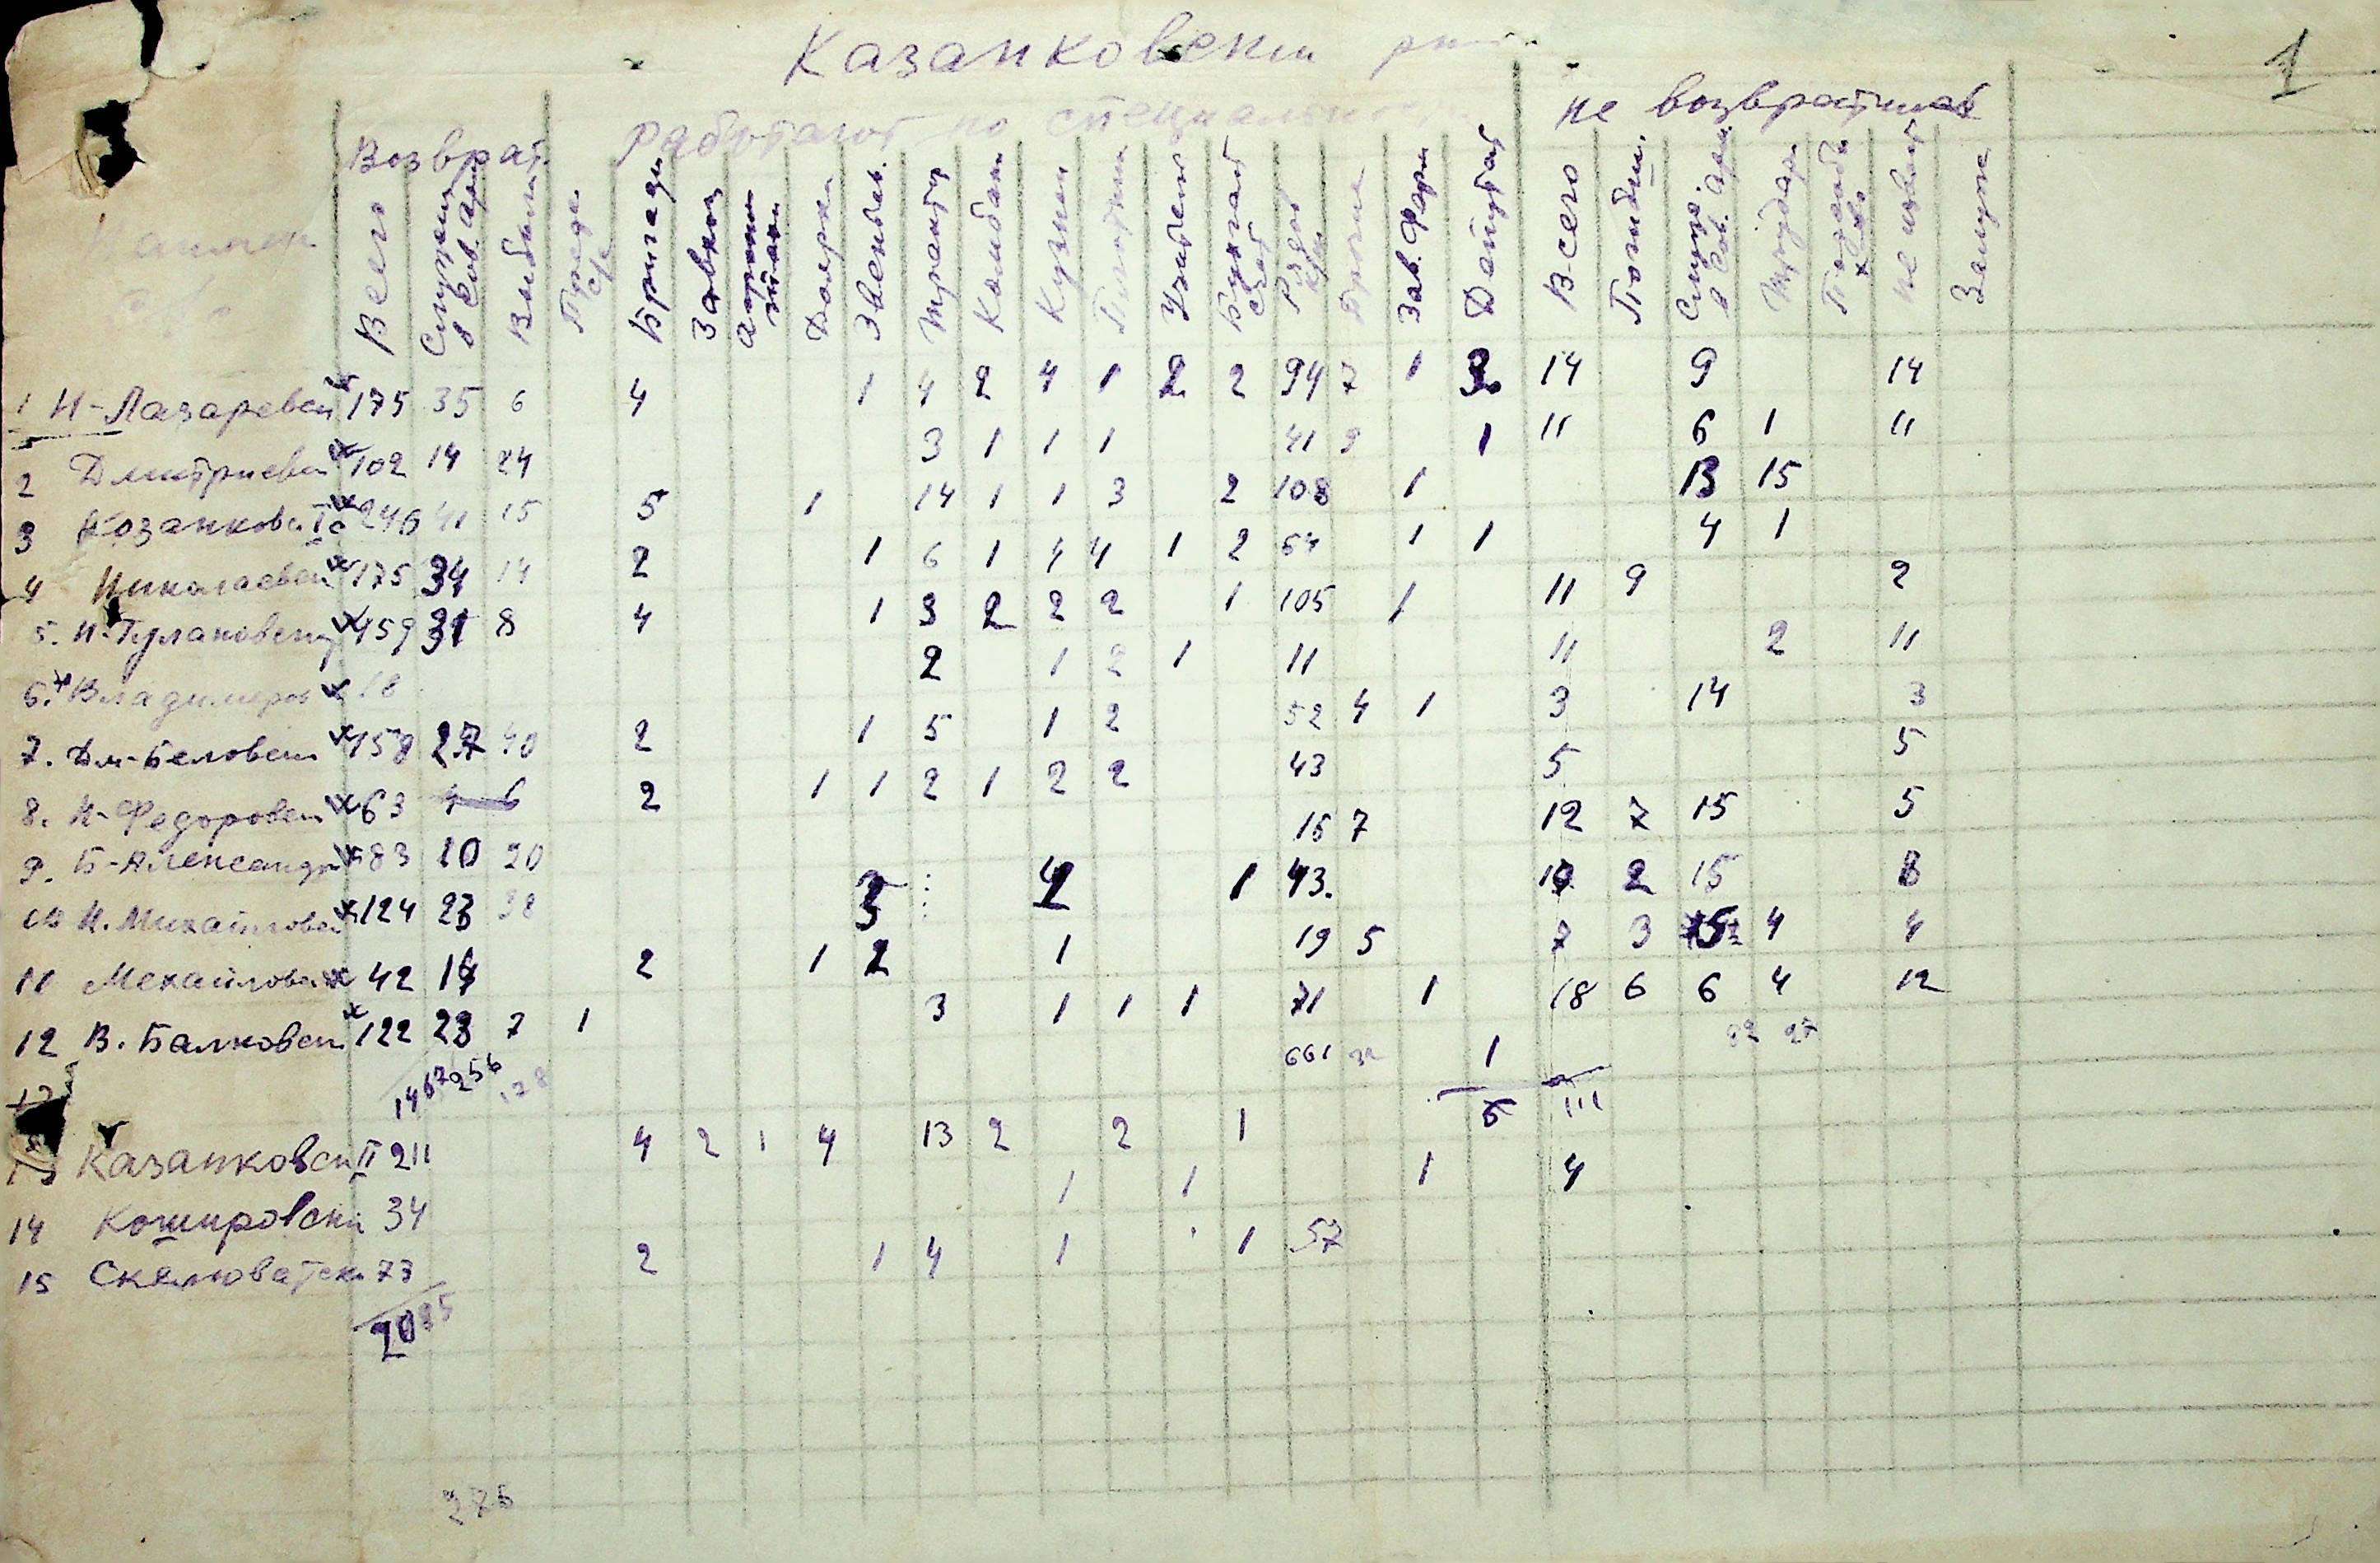 Казанковский
1
Возврат.
Работают по специальности
не возвратился
Всего
Служен в Сов. Арм
Выбыли
Бригади
Завхоз
Агроном
Доярки
Звеньев.
Трактор
Комбайн
Кузнец
Плотник
Учитель
Бухгал счет
Рядов
Другие
Зав. Ферм
Депутат
Всего
Погибш.
Служ. в Сов. Арм
Трударм
не извест
Замуж
1 Н-Лазаревск 175 35 6 4 1 4 2 4 1 2 2 94 7 1 3 14 9 14
2 Дмитриевск 102 14 24 3 1 1 1 41 9 1 11 6 1 11
3 Казанковск I 246 41 15 5 1 14 1 1 3 2 108 1 13 15
4 Николаевск 175 34 14 2 1 6 1 4 4 1 2 64 1 1 4 1
5. Н-Гулановск 159 31 8 4 1 3 2 2 2 1 105 1 11 9 2
6. Владимиров 18 2 1 2 1 11 11 2 11
7. Дм-Беловск 158 27 40 2 1 5 1 2 52 4 1 3 14 3
8. Н-Федоровск 63 2 1 1 2 1 2 2 43 5 5
9. Б-Александр 83 10 20 16 7 12 7 15 5
10 Н. Михайловск 124 23 38 3 1 43. 10 2 15 8
11 Михайловск 42 17 2 1 2 1 19 5 7 3 4 4
12 В. Балковск 122 23 7 1 3 1 1 1 71 1 18 6 6 4 12
1467 256 128 661 32 1 92 27
5 111
13 Казанковск II 211 4 2 1 4 13 2 2 1
14 Кошировски 34 1 1 1 4
15 Скелюватски 73 2 1 4 1 1 57
2085
276